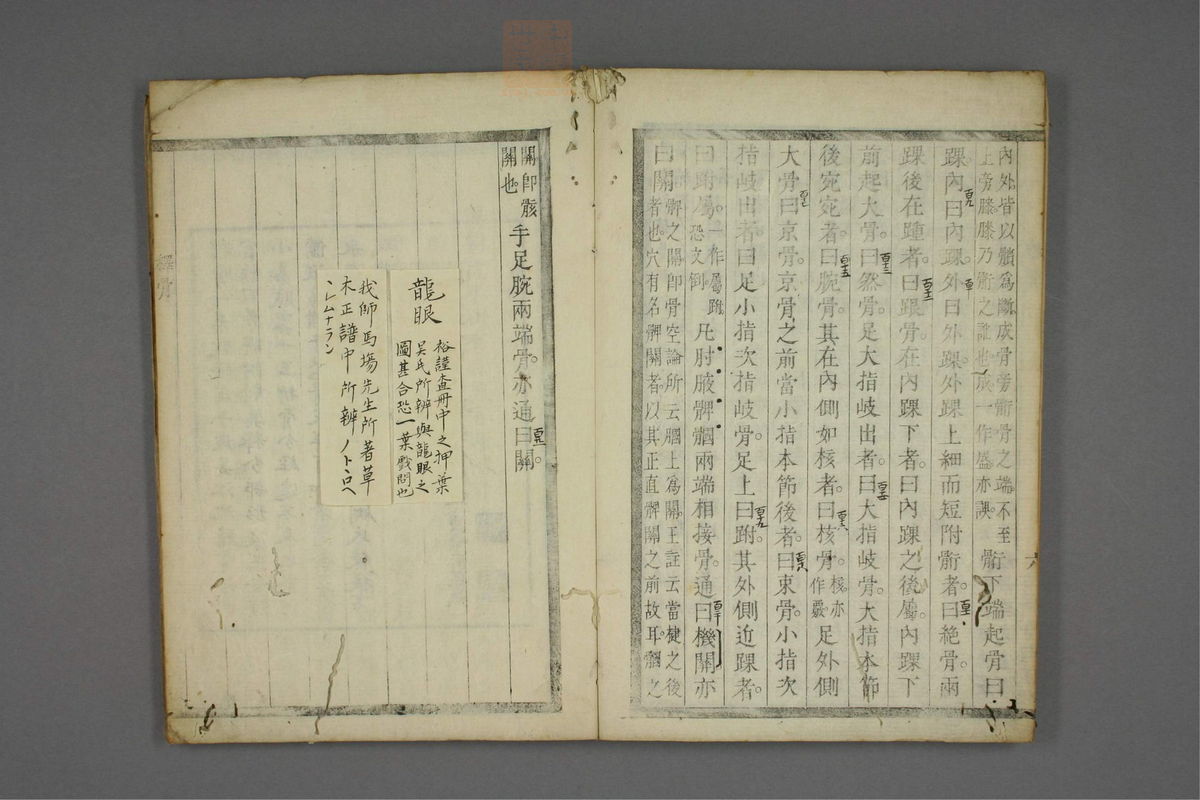 內外皆以髕爲斷成骨旁䯒骨之端不至
上旁膝膝乃䯒之訛也成一作盛亦誤
䯒下端起骨曰
踝內曰內踝外曰外踝外踝上細而短附䯒者曰絕骨兩
踝後在踵者曰跟骨在內踝下者曰內踝之後屬內踝下
前起大骨曰然骨足大指歧出者曰大指歧骨大指本節
後宛宛者曰腕骨其在內側如核者曰核骨
核亦
作覈
足外側
大骨曰京骨京骨之前當小指本節後者曰束骨小指次
指岐出者曰足小指次指岐骨足上曰跗其外側近踝者
曰跗屬
一作屬跗
恐文倒
凡肘腋髀膕兩端相接骨通曰機關亦
曰關
髀之關卽骨空論所云膕上爲關王註云當楗之後
者也穴有名髀關者以其正直髀關之前故耳膕之
關卽骸
關也
手足腕兩端骨亦通曰關
龍眼
裕謹查冊中之押葉
吴氏所辨與龍眼之
圖甚合恐一葉戲問也
我師馬場先生所著草
木正譜中所辨ノトコヘ
シムナラン
釋骨
六